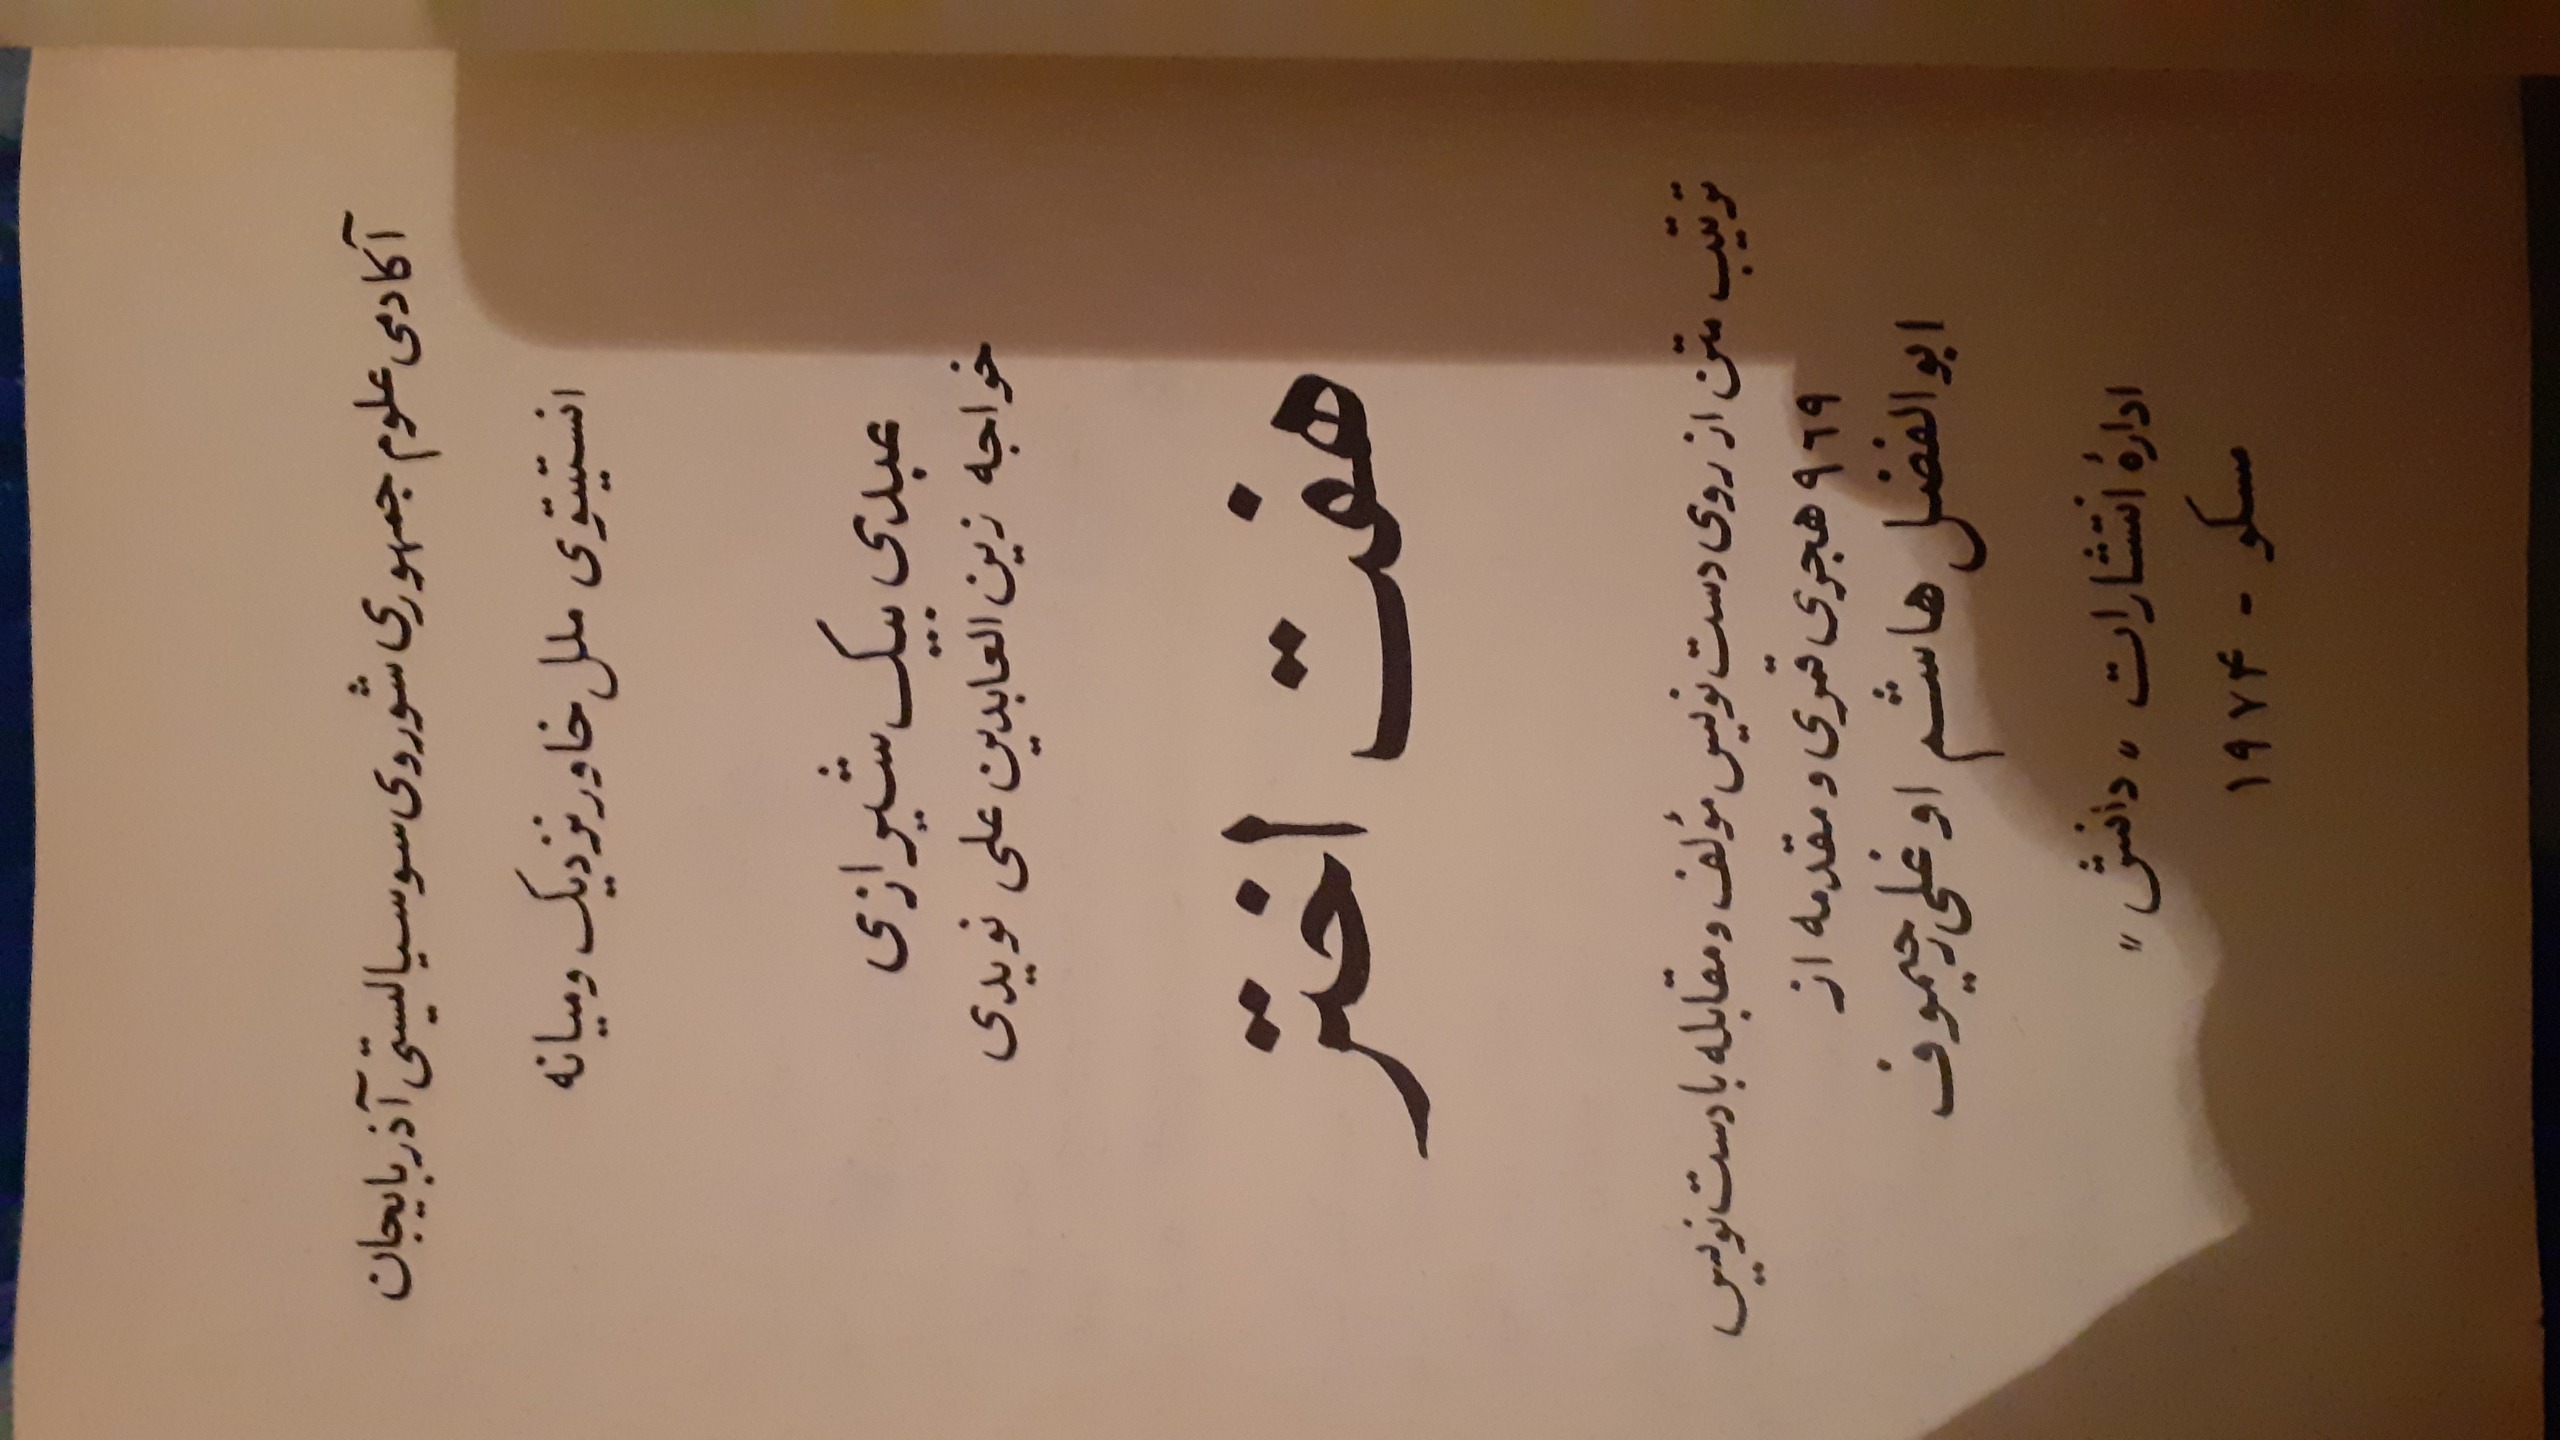 آکادمی علوم جمهوری شوروی سوسیالیستی آذربایجان
انستیتوی ملل خاور نزدیک و میانه
عبدی بیک شیرازی
خواجه زین العابدین علی نویدی
هفت اختر
ترتیب متن از روی دست نویس مؤلف و مقابله با دست نویس
۹٦۹ هجری قمری و مقدمه از
ابو الفضل هاشم اوغلی رحیموف
ادارهٔ انتشارات "دانش"
مسکو - ۱۹۷۴